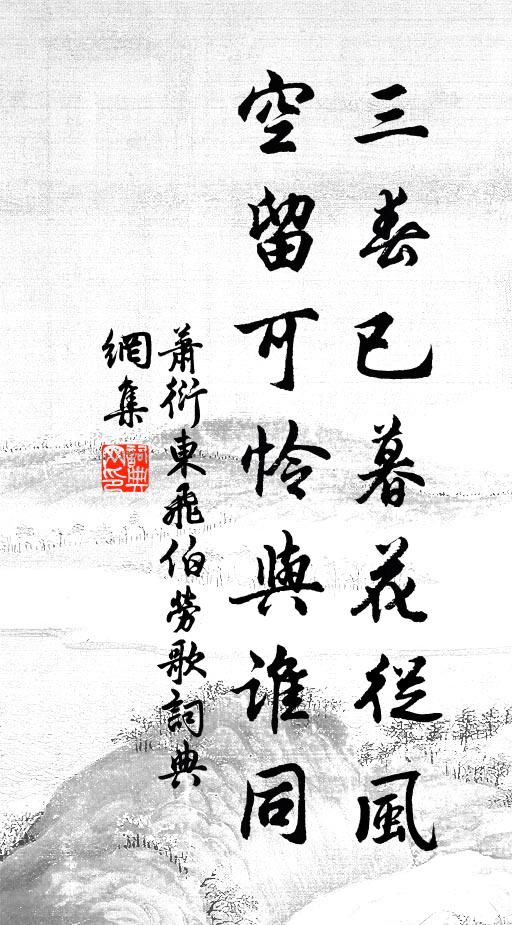 三春已暮花從風
空留可怜與誰同
蕭衍東飛伯勞歌詞典
網集
詞典
网印